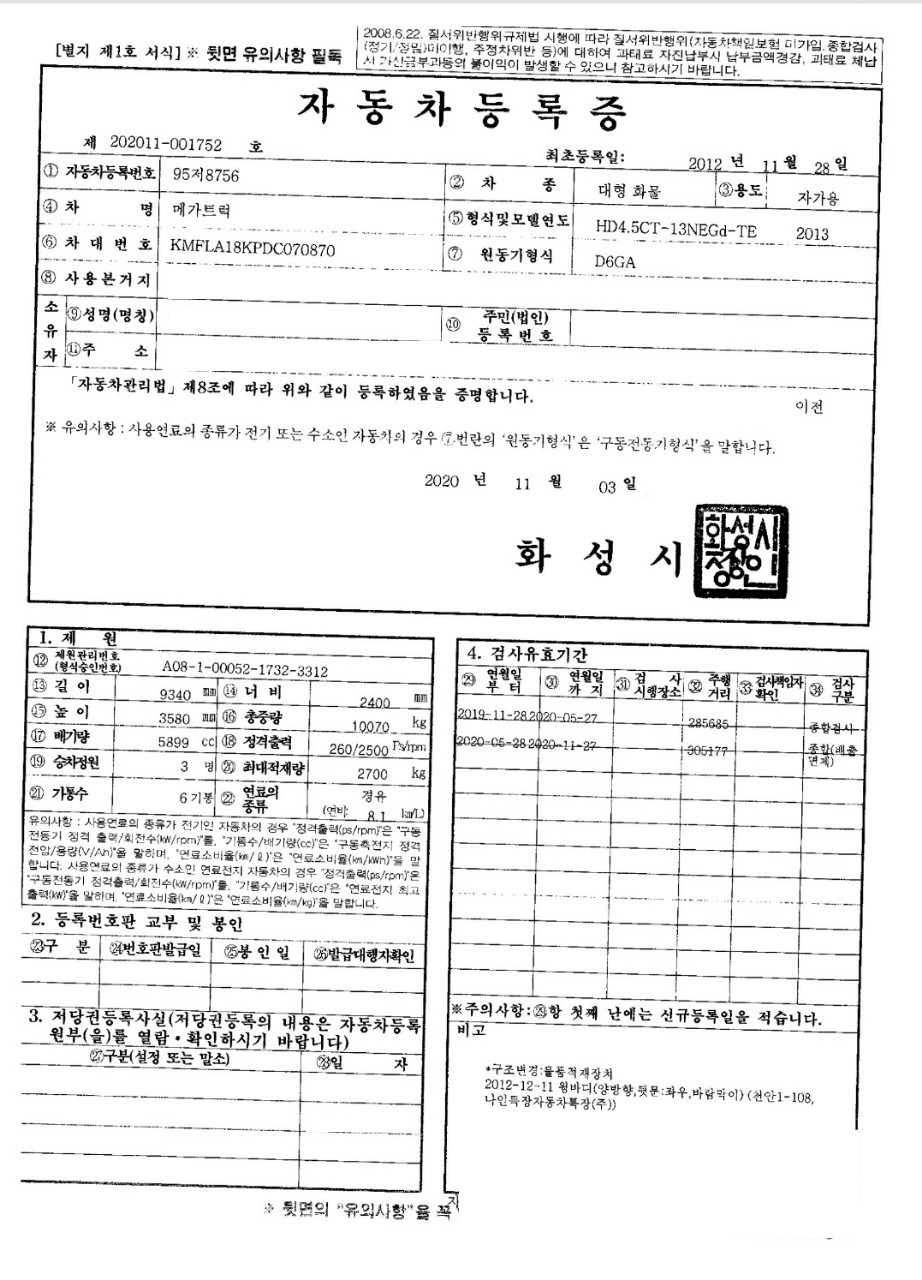 [별지 제1호 서식] ※ 뒷면 유의사항 필독
2008.6.22. 질서위반행위규제법 시행에 따라 질서위반행위(자동차책임보험 미가입, 종합검사
(정기/정밀)미이행, 주정차위반 등)에 대하여 과태료 자진납부시 납부금액경감, 과태료 체납
시 가산금부과등의 불이익이 발생할 수 있으니 참고하시기 바랍니다.
자동차등록증
제 202011-001752 호
최초등록일: 2012 년 11 월 28 일
① 자동차등록번호 95저8756 ② 차 종 대형 화물 ③용도 자가용
④ 차 명 메가트럭 ⑤형식및모델연도 HD4.5CT-13NEGd-TE 2013
⑥ 차 대 번 호 KMFLA18KPDC070870 ⑦ 원동기형식 D6GA
⑧ 사 용 본 거 지
소유자 ⑨성명(명칭) ⑩ 주민(법인)등록번호
⑪주 소
「자동차관리법」 제8조에 따라 위와 같이 등록하였음을 증명합니다.
이전
※ 유의사항 : 사용연료의 종류가 전기 또는 수소인 자동차의 경우 ⑦번란의 '원동기형식'은 '구동전동기형식'을 말합니다.
2020 년 11 월 03 일
화 성 시
화성시
장인
1. 제 원
⑫ 제원관리번호 (형식승인번호) A08-1-00052-1732-3312
⑬ 길 이 9340 mm ⑭ 너 비 2400 mm
⑮ 높 이 3580 mm ⑯ 총중량 10070 kg
⑰ 배기량 5899 cc ⑱ 정격출력 260/2500 Ps/rpm
⑲ 승차정원 3 명 ⑳ 최대적재량 2700 kg
㉑ 기통수 6 기통 ㉒ 연료의 종류 경유 (연비: 8.1 km/L)
유의사항 : 사용연료의 종류가 전기인 자동차의 경우 "정격출력(ps/rpm)"은 "구동
전동기 정격 출력/회전수(kW/rpm)"를, "기통수/배기량(cc)"은 "구동축전지 정격
전압/용량(V/Ah)"을 말하며, "연료소비율(km/ℓ)"은 "연료소비율(km/kWh)"을 말
합니다. 사용연료의 종류가 수소인 연료전지 자동차의 경우 "정격출력(ps/rpm)"은
"구동전동기 정격출력/회전수(kW/rpm)"를, "기통수/배기량(cc)"은 "연료전지 최고
출력(kW)"을 말하며, "연료소비율(km/ℓ)"은 "연료소비율(km/kg)"을 말합니다.
2. 등록번호판 교부 및 봉인
㉓구 분 ㉔번호판발급일 ㉕봉 인 일 ㉖발급대행자확인
3. 저당권등록사실(저당권등록의 내용은 자동차등록
원부(을)를 열람・확인하시기 바랍니다)
㉗구분(설정 또는 말소) ㉘일 자
4. 검사유효기간
㉙ 연월일 부터 ㉚ 연월일 까지 ㉛ 검 사 시행장소 ㉜ 주행 거리 ㉝ 검사책임자 확인 ㉞ 검사 구분
2019-11-28 2020-05-27 285685 종합검사
2020-05-28 2020-11-27 305177 종합(배출면제)
※주의사항:㉙항 첫째 난에는 신규등록일을 적습니다.
비고
*구조변경:물품적재장치
2012-12-11 윙바디(양방향,뒷문:좌우,바람막이) (천안1-108,
나인특장자동차특장(주))
※ 뒷면의 "유의사항"을 꼭